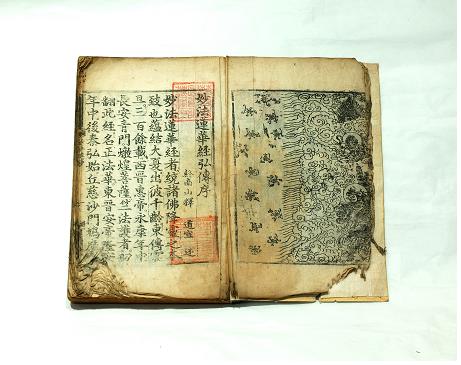 妙法蓮華經弘傳序
終南山釋 道宣 述
妙法蓮華經者統諸佛降靈之
致也蘊結大夏出彼千齡東傳震
旦三百餘載西晉惠帝永康年中
長安青門燉煌菩薩竺法護者初
翻此經名正法華東晉安帝隆
年中後秦弘始丘慈沙門鳩